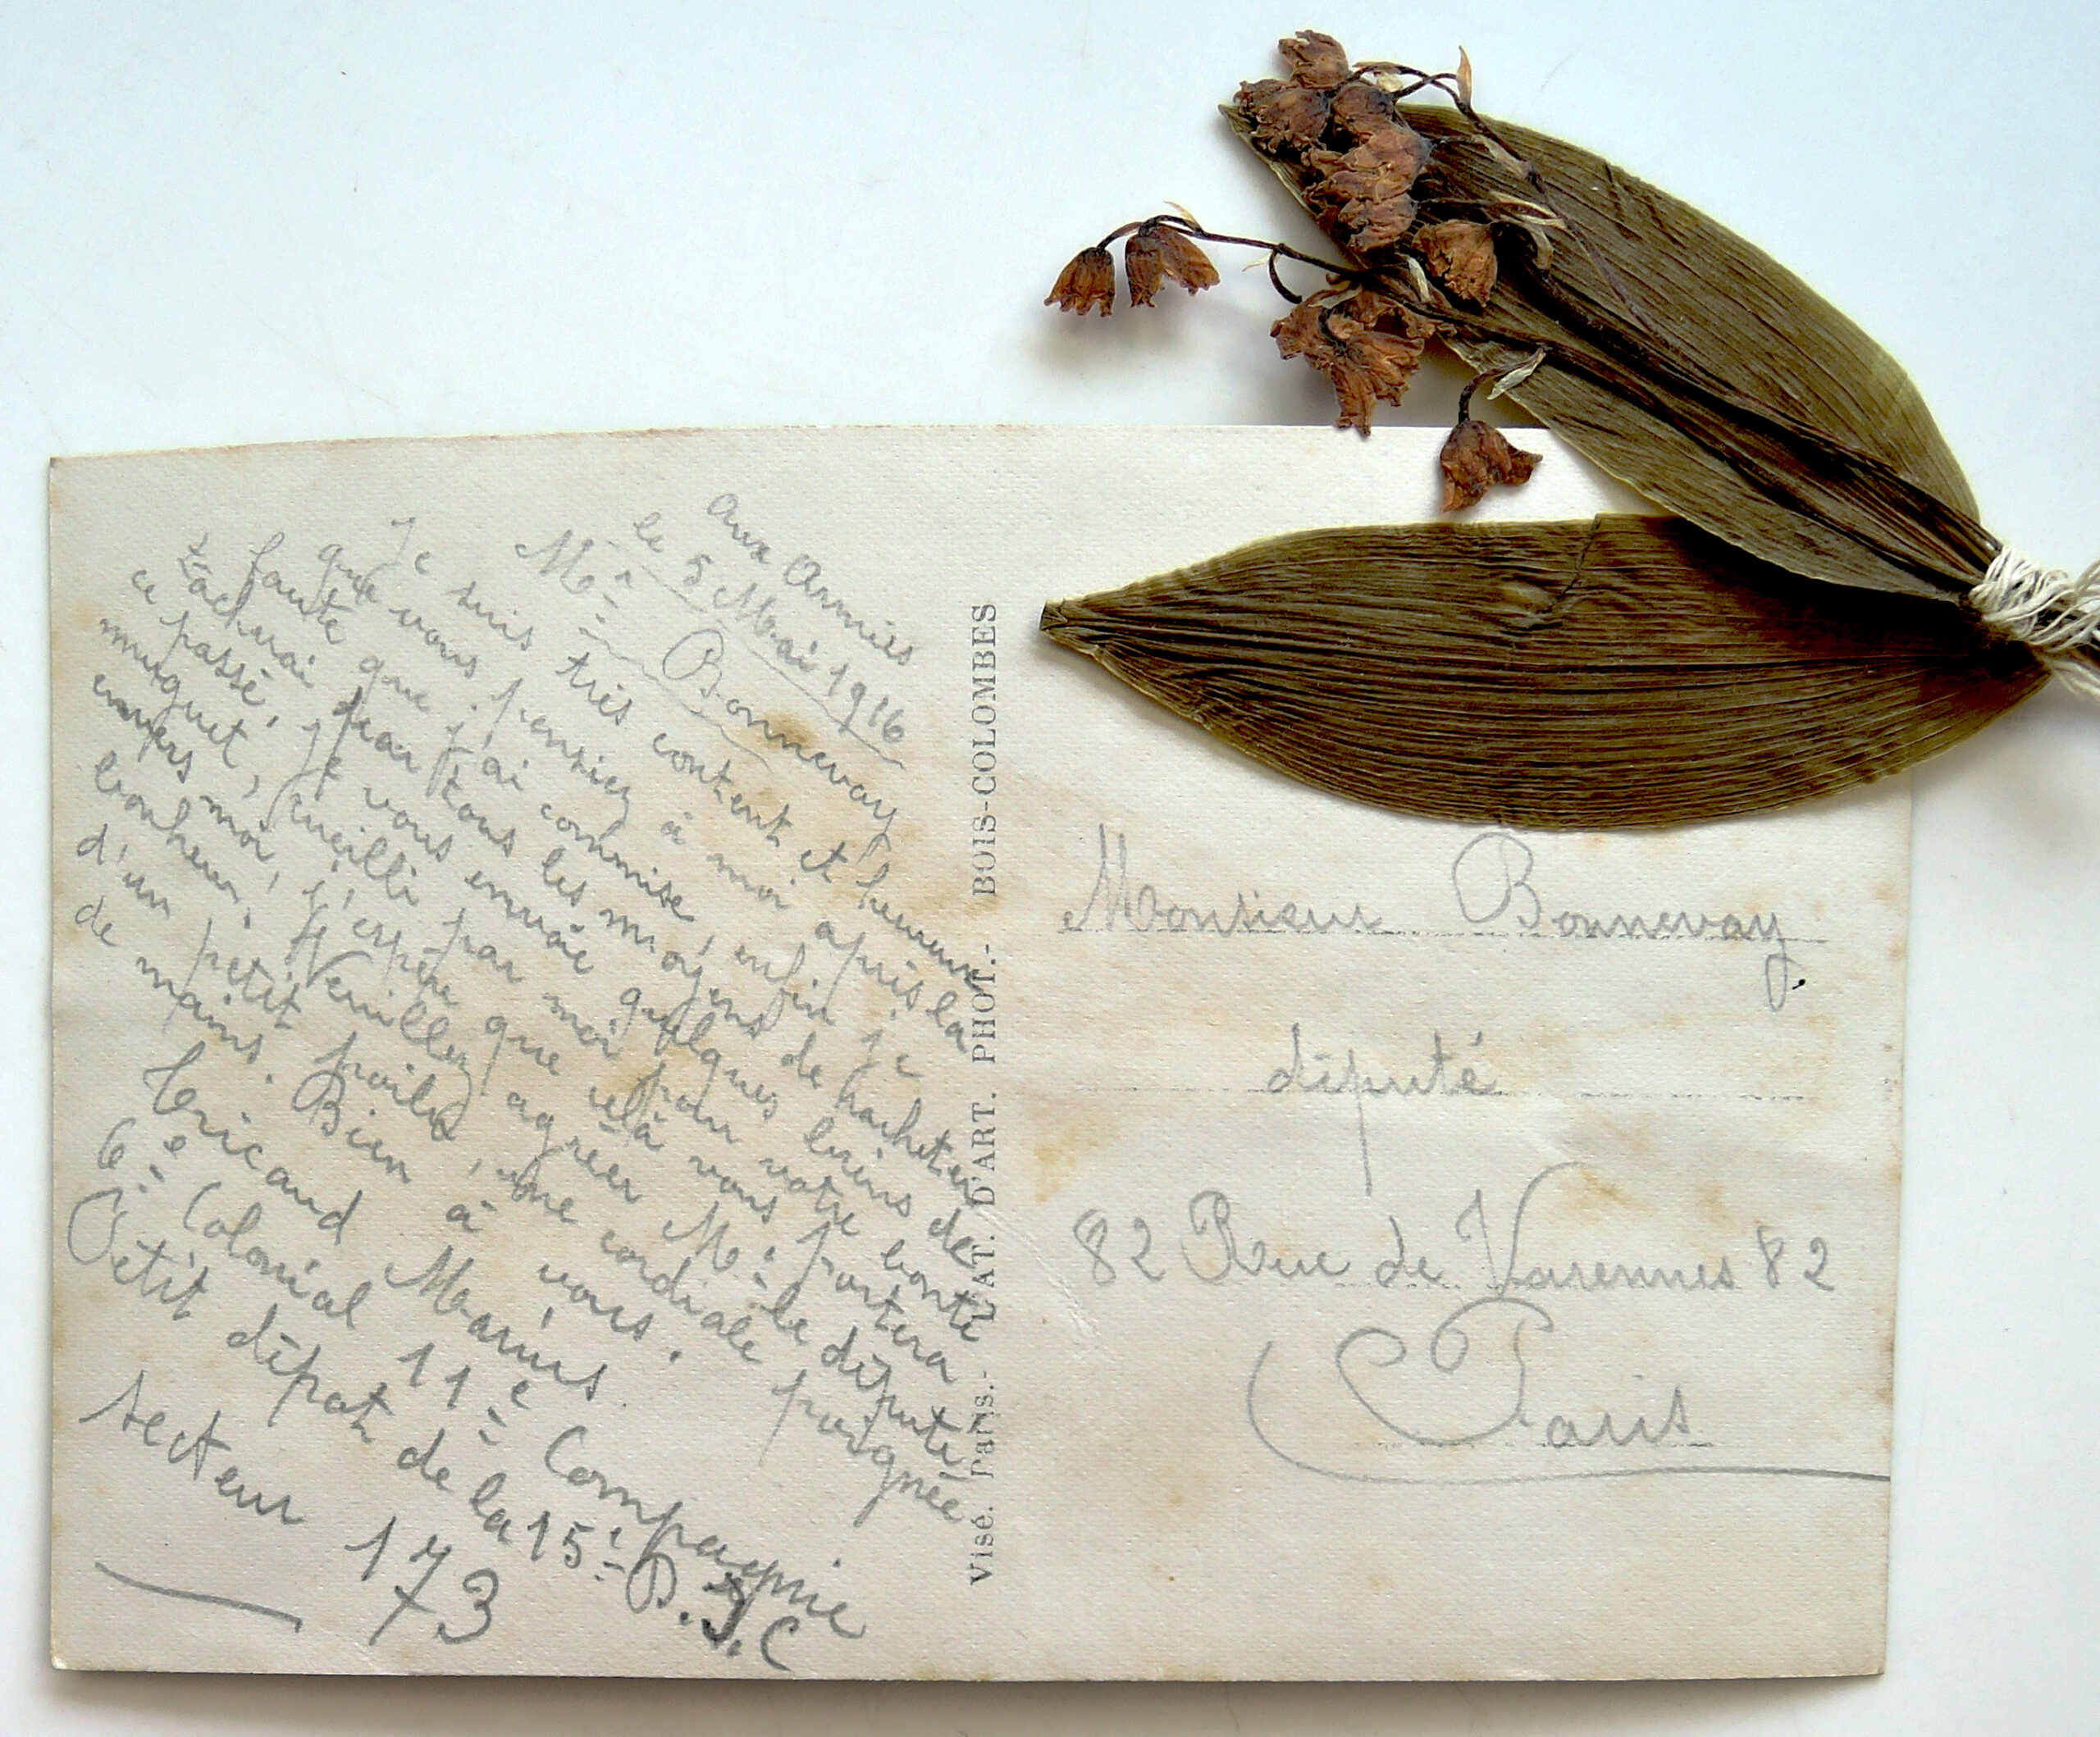 Aux Armées
le 5 Mai 1916
Mr Bonnevay
Je suis très content et heureux
que vous pensiez à moi après la
faute que j'ai commise, enfin je
tâcherai par tous les moyens de racheter
ce passé, je vous envoie quelques brins de
muguet, cueilli par moi pour votre bonté
envers moi, j'espère que celà vous portera
bonheur. Veuillez agréer Mr le député
d'un petit poilu, une cordiale poignée
de mains. Bien à vous.
Tricaud Marius
6e Colonial 11e Compagnie
Petit dépot de la 15e D.I.C
secteur 173
Visé. Paris.- L'AT. D'ART. PHOT.- BOIS-COLOMBES
Monsieur Bonnevay.
député
82 Rue de Varennes 82
Paris